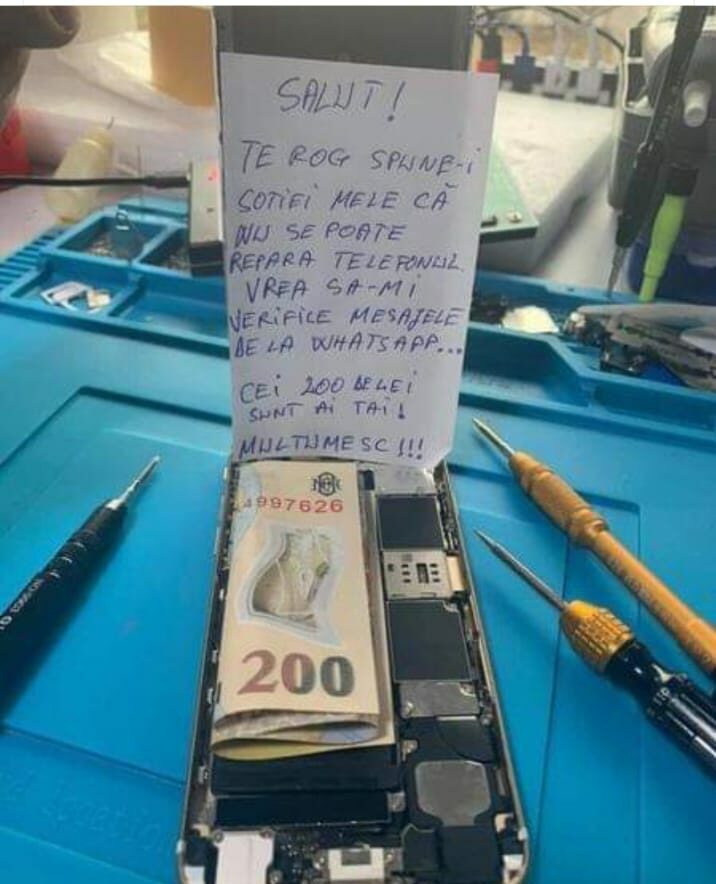 SALUT!
TE ROG SPUNE-i
SOTIEI MELE CĂ
NU SE POATE
REPARA TELEFONUL.
VREA SA-MI
VERIFICE MESAJELE
DE LA WHATSAPP...
CEI 200 DE LEI
SUNT AI TAI!
MULTUMESC!!!
4997626
200